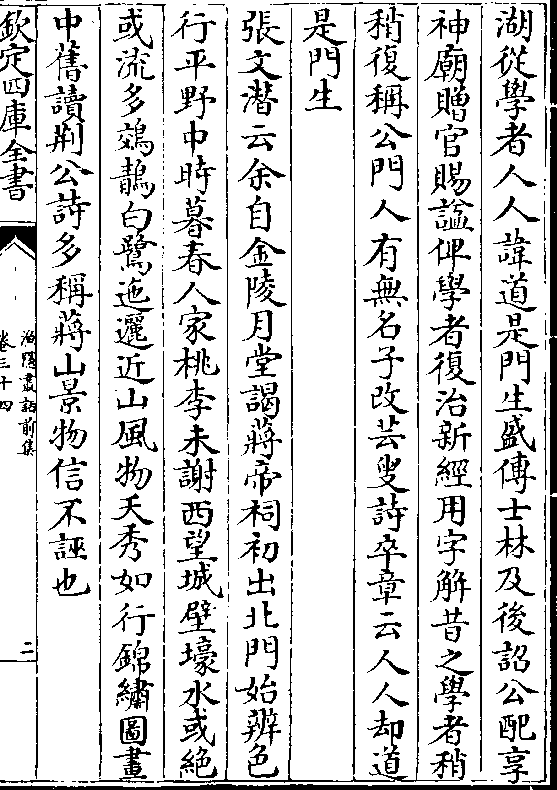 湖從學者人人諱道是門生盛傳士林及後詔公配享
神廟贈官賜諡俾學者復治新經用字解昔之學者稍
稍復稱公門人有無名子改芸叟詩卒章云人人却道
是門生
張文潛云余自金陵月堂謁蔣帝祠初出北門始辨色
行平野中時暮春人家桃李未謝西望城壁壕水或絕
或流多鵁鶄白鷺迤邐近山風物夭秀如行錦繡圖畫
中舊讀荆公詩多稱蔣山景物信不誣也
欽定四庫全書
漁隱叢話前集
卷三十四
二